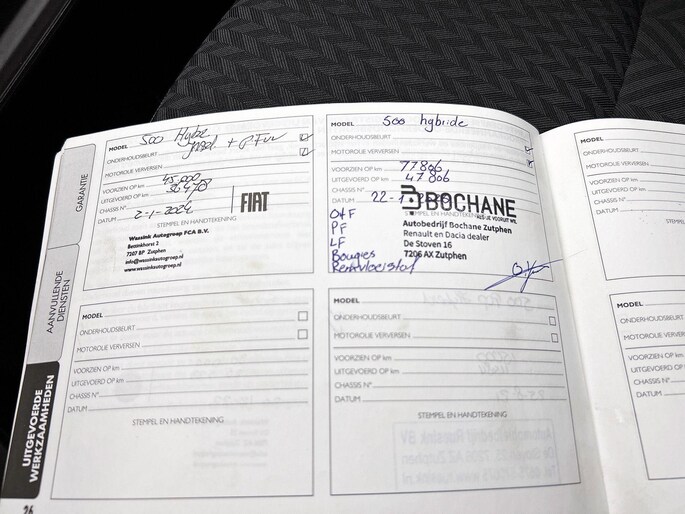 GARANTIE
AANVULLENDE
DIENSTEN
UITGEVOERDE
WERKZAAMHEDEN
MODEL 500
ONDERHOUDSBEURT
MOTOROLIE VERVERSEN
VOORZIEN OP km 45.000
UITGEVOERD OP km
CHASSIS N°
DATUM 2-1-2024
FIAT
STEMPEL EN HANDTEKENING
Wassink Autogroep FCA B.V.
7207 BP Zutphen
info@wassinkautogroep.nl
www.wassinkautogroep.nl
MODEL 500 hybride
ONDERHOUDSBEURT
MOTOROLIE VERVERSEN
VOORZIEN OP km 77806
UITGEVOERD OP km 47806
CHASSIS N°
DATUM 22-1
BOCHANE
STEMPEL EN HANDTEKENING
Autobedrijf Bochane Zutphen
Renault en Dacia dealer
De Stoven 16
7206 AX Zutphen
PF
LF
Bougies
Remvloeistof
MODEL
ONDERHOUDSBEURT
MOTOROLIE VERVERSEN
VOORZIEN OP km
UITGEVOERD OP km
CHASSIS N°
DATUM
STEMPEL EN HANDTEKENING
MODEL
ONDERHOUDSBEURT
MOTOROLIE VERVERSEN
VOORZIEN OP km
UITGEVOERD OP km
CHASSIS N°
DATUM
STEMPEL EN HANDTEKENING
MODEL
ONDERHOUDSBEURT
MOTOROLIE
VOORZIEN OP
UITGEVOERD
CHASSIS N°
DATUM
MODEL
ONDERHOUD
MOTOROLIE
VOORZIEN
UITGEVOERD
CHASSIS N°
DATUM
26